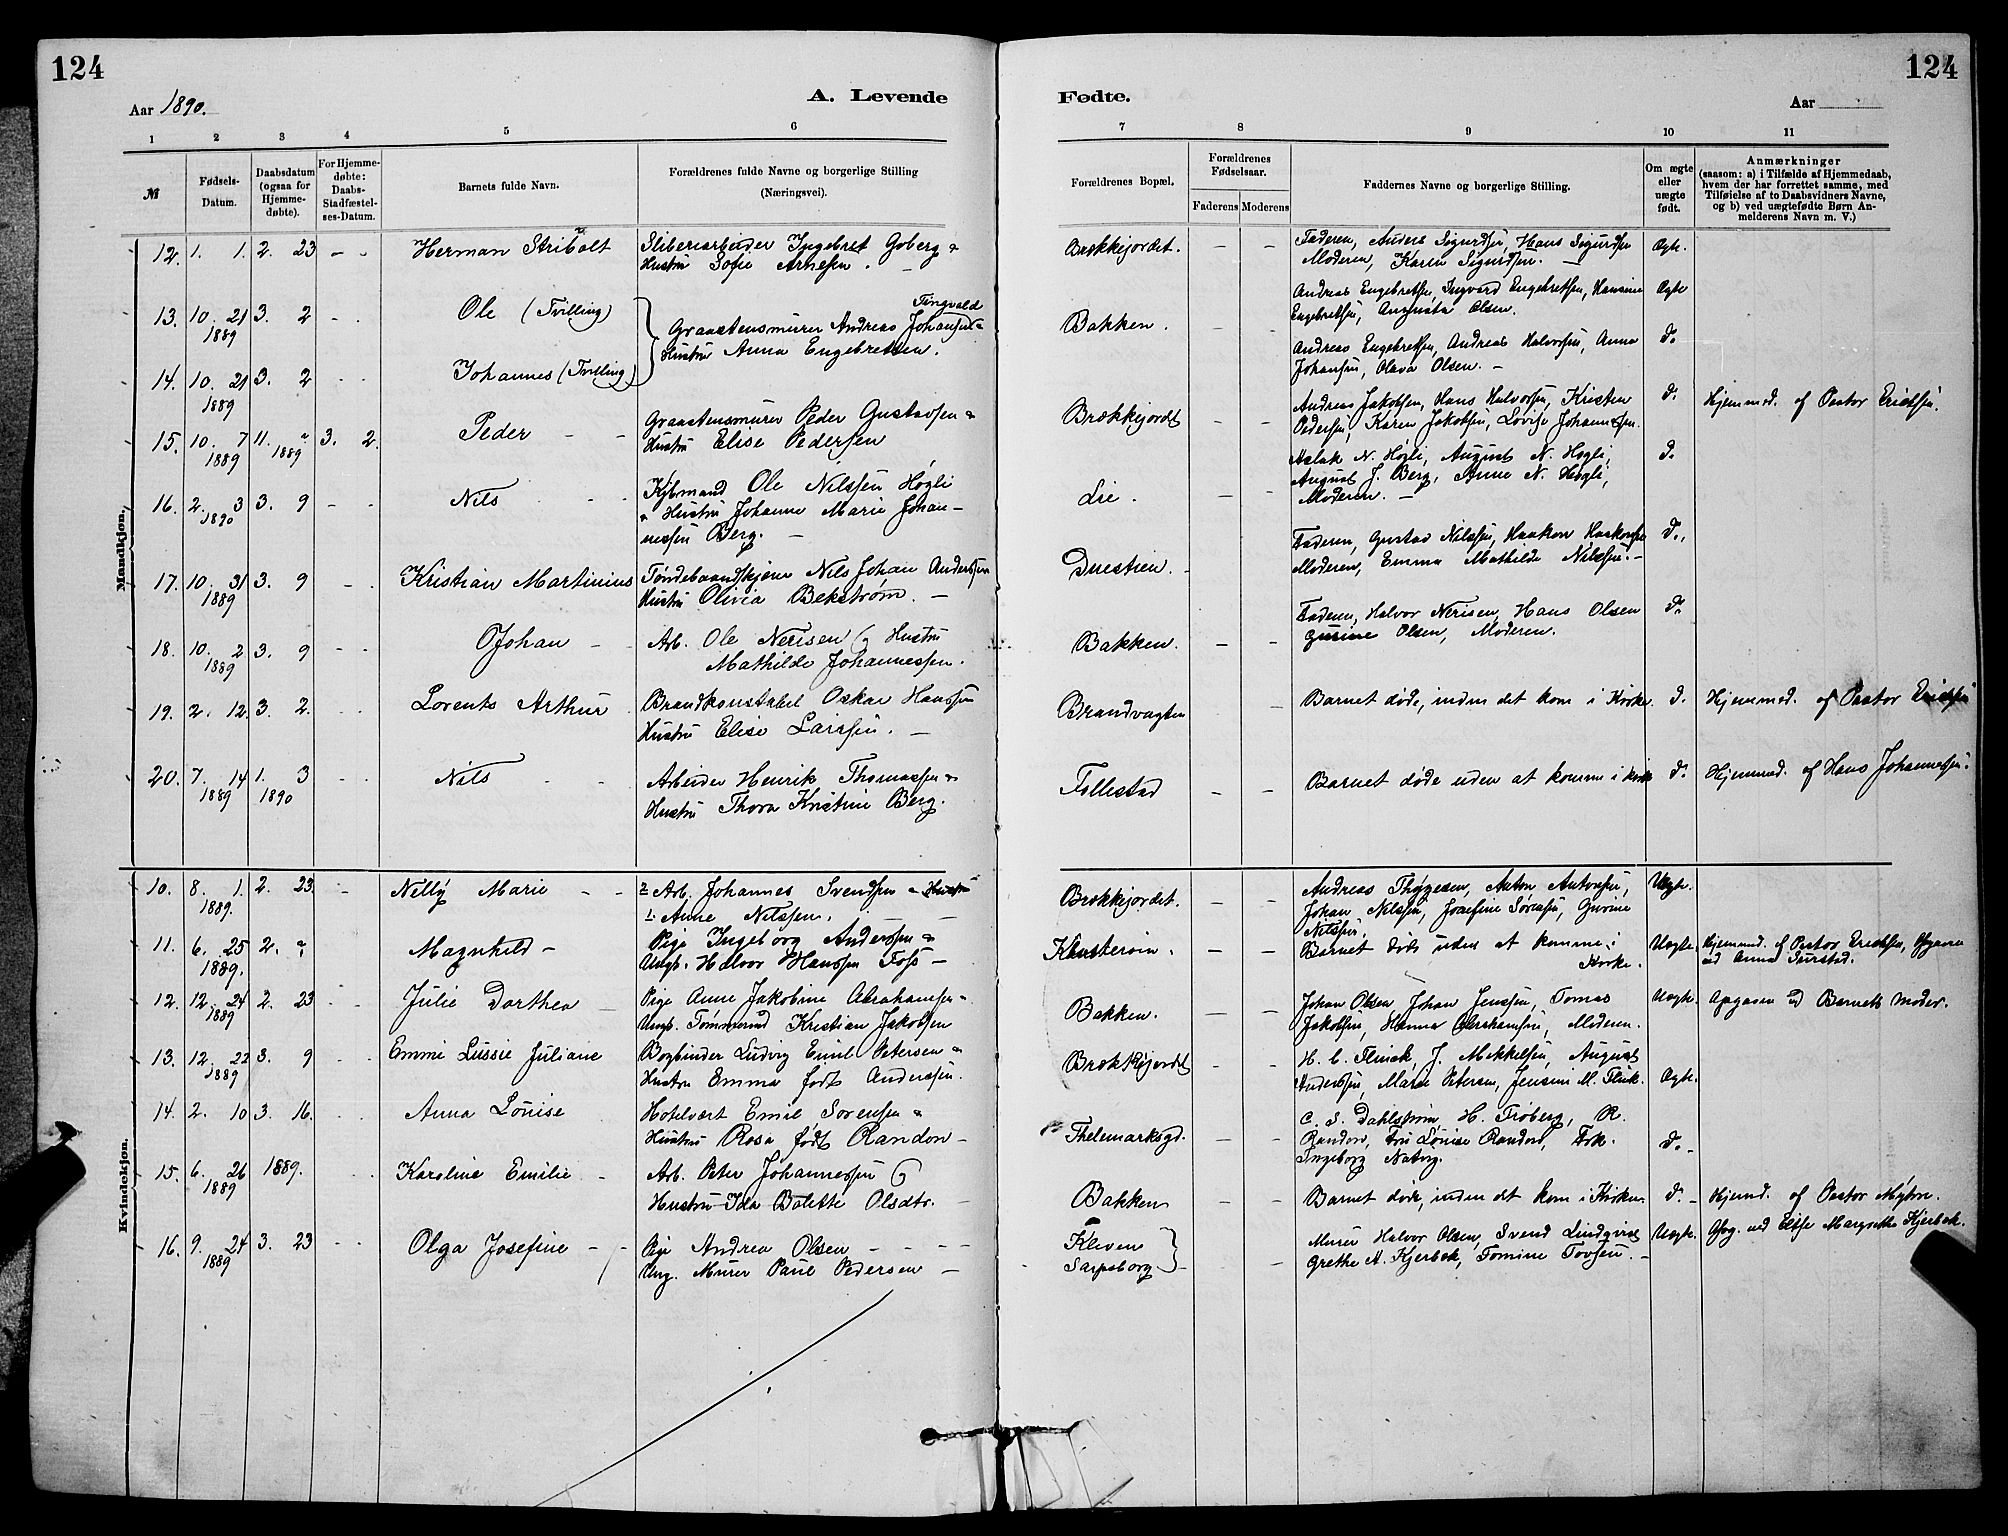 124
124
Aar 1890.
A. Levende
Fødte.
Aar
1 2 3 4 5 6 7 8 9 10 11
№
Fødsels-
Datum.
Daabsdatum
(ogsaa for
Hjemme-
døbte).
For Hjemme-
døbte:
Daabs-
Stadfæstel-
ses-Datum.
Barnets fulde Navn.
Forældrenes fulde Navne og borgerlige Stilling
(Næringsvei).
Forældrenes Bopæl.
Forældrenes
Fødselsaar.
Faderens Moderens
Faddernes Navne og borgerlige Stilling.
Om ægte
eller
uægte
født.
Anmærkninger
(saasom: a) i Tilfælde af Hjemmedaab,
hvem der har forrettet samme, med
Tilføielse af to Daabsvidners Navne,
og b) ved uægtefødte Børn An-
melderens Navn m. V.)
Mandkjøn.
12. 1. 1. 2. 23 Herman Stribolt
Sliberiarbeider Ingebret Goberg &
Hustru Sofie Arnesen.
Brækkejordet.
Faderen, Anders Sigurdsen, Hans Sigurdsen
Moderen, Karen Sigurdsen.
Ægte.
13. 10. 21 3. 2 Ole (Tvilling)
1889
Tingvald
Graastensmurer Andreas Johansen &
Hustru Anna Engebretsen.
Bakken.
Andreas Engebretsen, Ingvard Engebretsen, Hansine
Engebretsen, Augusta Olsen.
Ægte
14. 10. 21 3. 2 Johannes (Tvilling)
1889
Andreas Engebretsen, Andreas Halvorsen, Anna
Johansen, Olava Olsen.
Do
15. 10. 7 11. 3. 2. Peder
1889 1889
Graastensmurer Peder Gustavsen &
Hustru Elise Pedersen
Brækkejordet
Andreas Jakobsen, Hans Halvorsen, Kristen
Pedersen, Karen Jakobsen, Lovise Johannesen.
Do
Hjemmed. af Pastor Erichsen.
16. 2. 3 3. 9 Nils
1890
Kjøbmand Ole Nilssen Høgli
& Hustru Johanne Marie Johan-
nessen Berg.
Lie.
Aslak N. Høgli, August N. Høgli,
August J. Berg, Anne N. Høgli,
Moderen.
Do
17. 10. 31 3. 9 Kristian Martinius
1889
Tøndebaandskjører Nils Johan Anderssen
Hustru Olivia Bekstrøm.
Duestien.
Faderen, Gustav Nilssen, Haakon Haakonsen
Moderen, Emma Mathilde Nilssen.
Do
18. 10. 2 3. 9 Johan
1889
Arb. Ole Nerisen og Hustru
Mathilde Johannessen.
Bakken.
Faderen, Halvor Nerisen, Hans Olsen
Gurine Olsen, Moderen.
Do
19. 2. 12. 3. 2. Lorents Arthur
Brandkonstabel Oskar Hanssen
Hustru Elise Larssen.
Brandvagten
Barnet døde, inden det kom i Kirke.
D.
Hjemmed. af Pastor Erichsen
20. 7. 14 1. 3 Nils
1889 1890
Arbeider Henrik Thomassen &
Hustru Thora Kristine Berg.
Follestad
Barnet døde uden at komme i Kirke
Do
Hjemmed. af Hans Johannessen.
Kvindekjøn.
10. 8. 1. 2. 23 Nelly Marie
1889.
2. Arb. Johannes Svendsen & Hustru
1. Anne Nilssen.
Brækkejordet.
Andreas Thøgesen, Anton Antonsen,
Johan Nilssen, Josefine Sørensen, Gurine
Nilssen
Uægte.
11. 6. 25 2. Magnhild
1889.
Pige Ingeborg Anderssen &
Ungk. Halvor Hanssen Foss
Klosterøen.
Barnet døde uden at komme i
Kirke.
Uægte.
Hjemmed. af Pastor Erichsen,
ved Anna
12. 12. 24 2. 23 Julie Dorthea
1889
Pige Anne Jakobine Abrahamsen
Ungk. Tømmermd Kristian Jakobsen
Bakken.
Johan Olsen Johan Jenssen, Tomas
Jakobsen, Hanna Abrahamsen, Moderen.
Uægte.
Opgaven ved Barnets Moder.
13. 12. 22 3. 9 Emmi Lussie Juliane
1889
Bogbinder Ludvig Emil Petersen &
Hustru Emma født Anderssen.
Brækkejordet
H. C. Flinck, J. Mikkelsen, August
Anderssen, Marie Petersen, Jensine M. Flink.
Ægte.
14. 2. 10 3. 16. Anna Louise
Hotelvært Emil Sørensen &
Hustru Rosa født Randon
Thelemarksgd.
C. S. Dahlstrøm, H. Frøberg, R.
Randon, Fru Louise Randon, Frk.
Ingeborg Natvig.
Do
15. 6. 26 1889. Karoline Emilie
1889
Arb. Peter Johannessen og
Hustru Ida Bolette Olsdtr.
Bakken
Barnet døde, inden det kom i Kirken
D.
Hjemd. af Pastor Myhre.
16. 9. 24 3. 23 Olga Josefine
1889
Pige Andrea Olsen
Ung. Murer Paul Pedersen
Kleven
Sarpsborg
Murer Halvor Olsen, Svend Lindqvist
Grethe A. Kjerbek, Tomine Tovsen.
Uægte.
Opg. ved Else Margrethe Kjerbek.